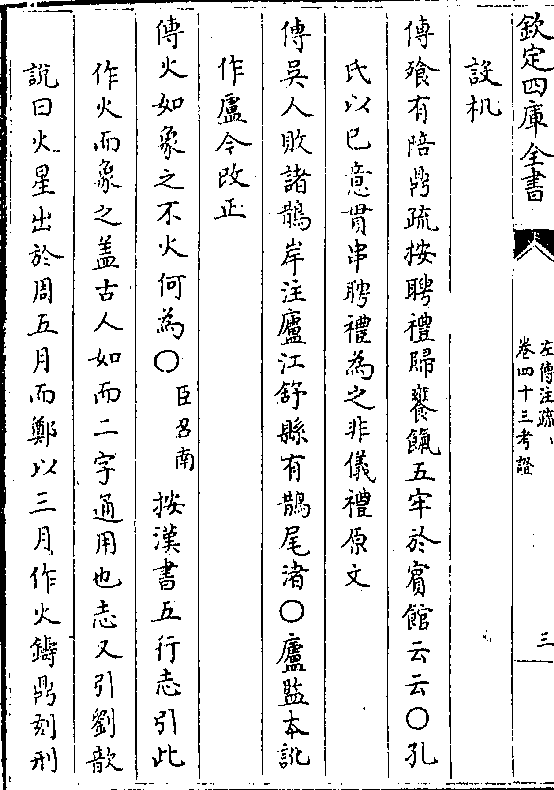 欽定四庫全書
左傳注疏
卷四十三考證
三
設机
傳飧有陪鼎疏按聘禮歸饔餼五牢於賓館云云○孔
氏以已意貫串聘禮為之非儀禮原文
傳吳人敗諸鵲岸注廬江舒縣有鵲尾渚○廬監本訛
作盧今改正
傳火如象之不火何為○臣召南按漢書五行志引此
作火而象之盖古人如而二字通用也志又引劉歆
說曰火星出於周五月而鄭以三月作火鑄鼎刻刑